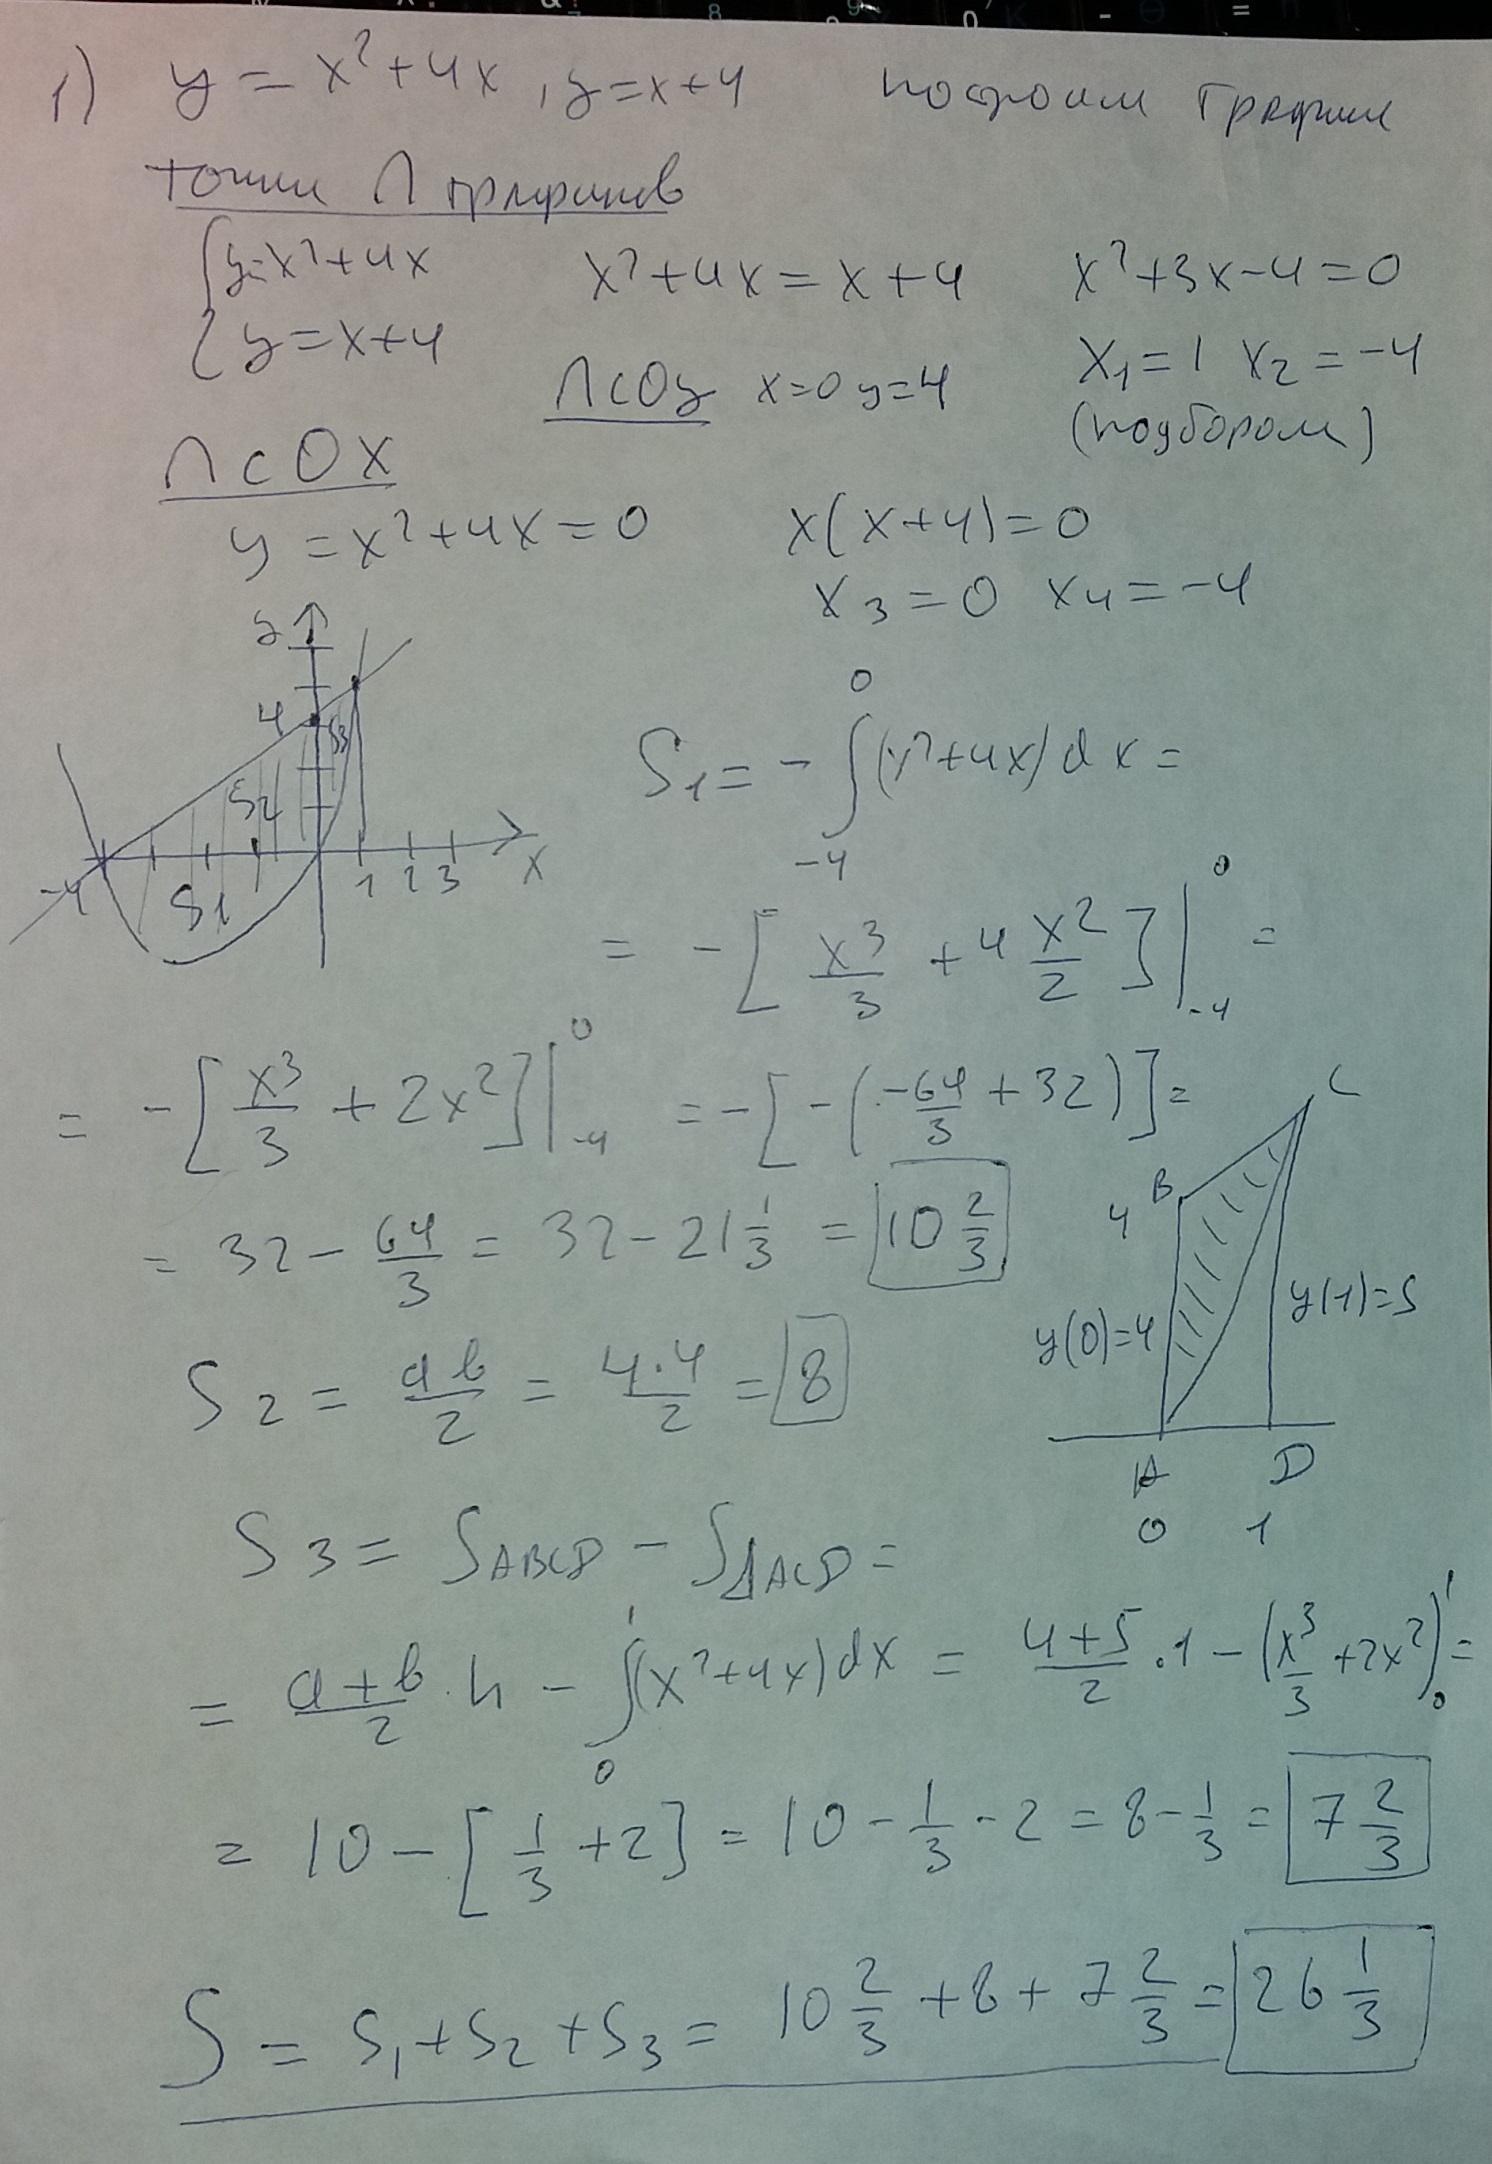 1) y = x² + 4x, y = x + 4 построим графики
точки ∩ графиков
{ y = x² + 4x
{ y = x + 4
x² + 4x = x + 4
x² + 3x - 4 = 0
x₁ = 1 x₂ = -4
(подбором)
∩ с Oy x = 0 y = 4
∩ с OX
y = x² + 4x = 0 x(x + 4) = 0
x₃ = 0 x₄ = -4
y
4
S3
S2
S1
-4 1 2 3 x
S₁ = - ∫₋₄⁰ (x² + 4x) dx =
= - [x³/3 + 4 x²/2] |₋₄⁰ =
= - [x³/3 + 2x²] |₋₄⁰ = - [-(-64/3 + 32)] =
= 32 - 64/3 = 32 - 21 1/3 = 10 2/3
S₂ = ab/2 = 4·4/2 = 8
C
B
4
y(0) = 4 y(1) = 5
A D
0 1
S₃ = S ABCD - S ΔACD =
= (a + b)/2 · h - ∫₀¹ (x² + 4x) dx = (4 + 5)/2 · 1 - (x³/3 + 2x²)₀¹ =
= 10 - [1/3 + 2] = 10 - 1/3 - 2 = 8 - 1/3 = 7 2/3
S = S₁ + S₂ + S₃ = 10 2/3 + 8 + 7 2/3 = 26 1/3